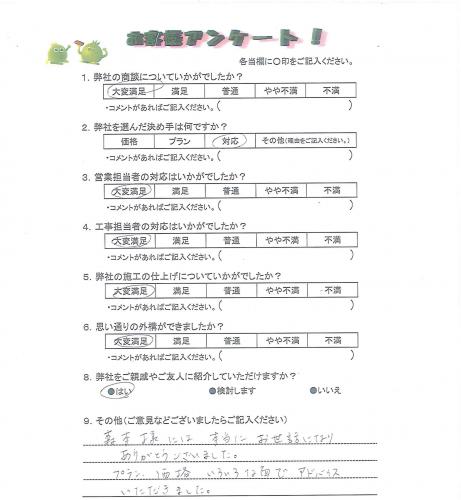 お客様アンケート！
各当欄に〇印をご記入ください。
1. 弊社の商談についていかがでしたか？
大変満足 満足 普通 やや不満 不満
・コメントがあればご記入ください。（ ）
2. 弊社を選んだ決め手は何ですか？
価格 プラン 対応 その他（理由をご記入ください。）
・コメントがあればご記入ください。（ ）
3. 営業担当者の対応はいかがでしたか？
大変満足 満足 普通 やや不満 不満
・コメントがあればご記入ください。（ ）
4. 工事担当者の対応はいかがでしたか？
大変満足 満足 普通 やや不満 不満
・コメントがあればご記入ください。（
5. 弊社の施工の仕上げについていかがでしたか？
大変満足 満足 普通 やや不満 不満
・コメントがあればご記入ください。（ ）
6. 思い通りの外構ができましたか？
大変満足 満足 普通 やや不満 不満
・コメントがあればご記入ください。（ ）
8. 弊社をご親戚やご友人に紹介していただけますか？
●はい ●検討します ●いいえ
9. その他（ご意見などございましたらご記入ください）
様には 本当に お世話になり
ありがとうございました。
プラン、価格 いろいろな面で アドバイス
いただきました。